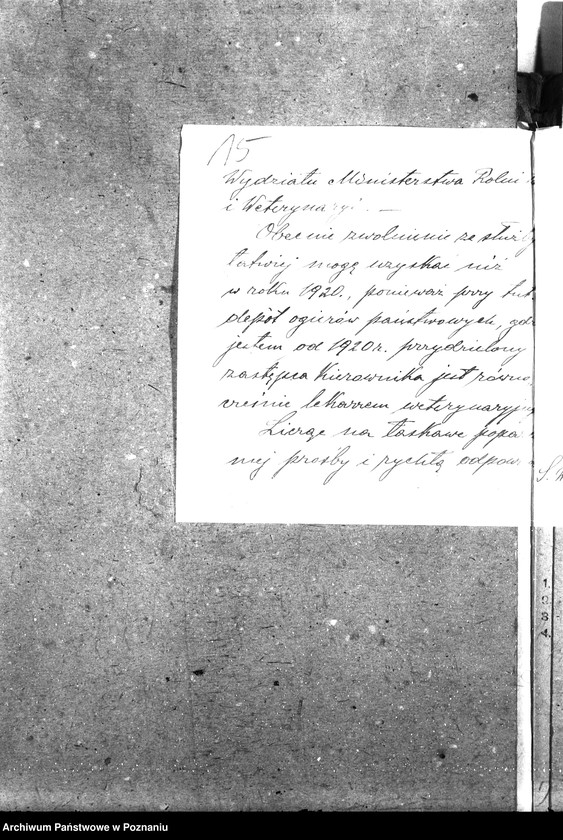 15
Wydziału Ministerstwa Rolni
i Weterynaryi. —
Obecnie zwolnienie ze służby
łatwiej mogę uzyskać niż
w roku 1920., ponieważ przy tut
depôt ogierów państwowych, gdz
jestem od 1920 r. przydzielony
zastępca Kierownika jest równo
cześnie lekarzem weterynaryjny
Licząc na łaskawe popar
mej prośby i rychłą odpow
S. W
1
2
3
4
Archiwum Państwowe w Poznaniu